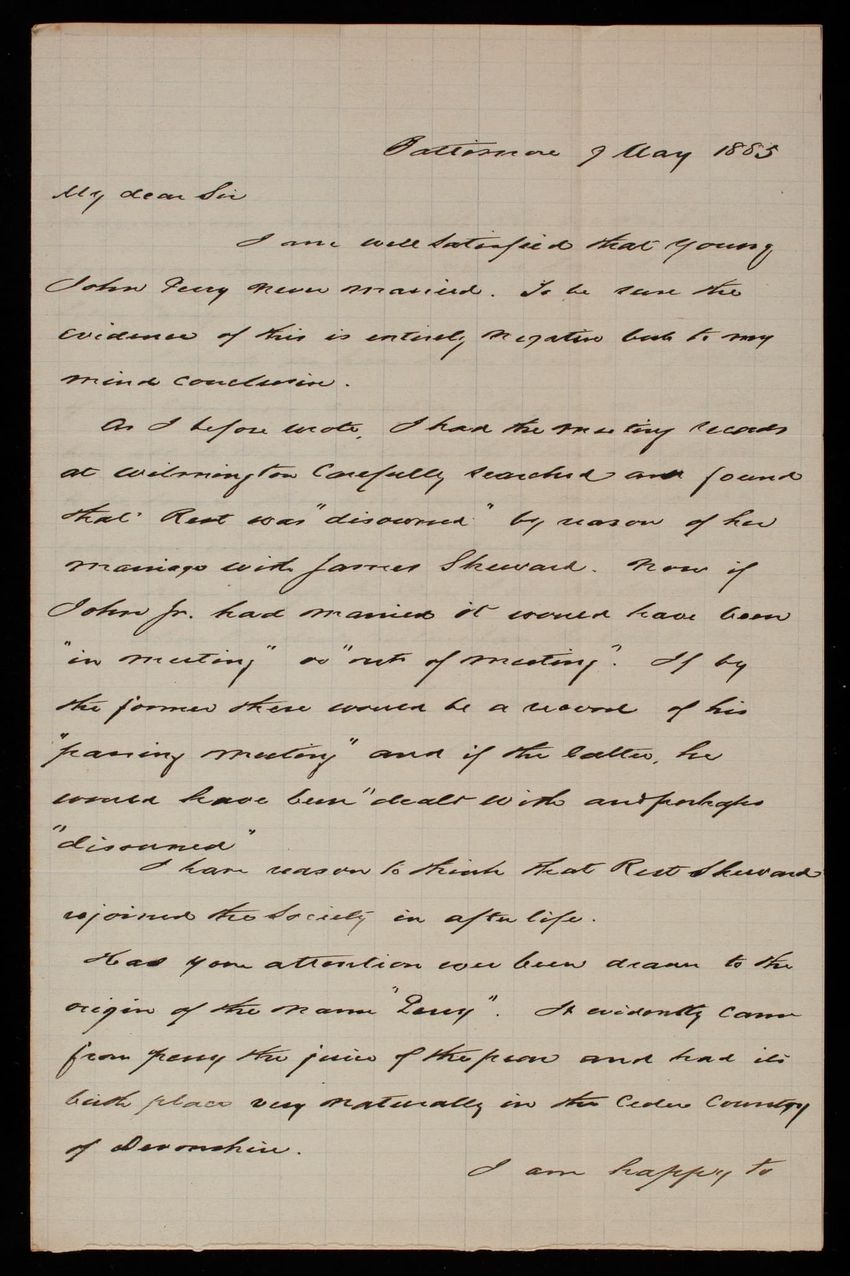 Baltimore 9 May 1885
My dear Sir
I am well satisfied that young
John Perry never married. To be sure the
evidence of this is entirely negative but to my
mind conclusive.
As I before wrote, I had the meeting records
at Wilmington Carefully searched and found
that Rest was "disowned" by reason of her
marriage with James Sheward. Now if
John Jr. had married it would have been
"in meeting" or "out of meeting". If by
the former there would be a record of his
"passing meeting" and if the latter, he
would have been "dealt with and perhaps
"disowned"
I have reason to think that Rest Sheward
rejoined the Society in after life.
Has your attention ever been drawn to the
origin of the name "Perry". It evidently came
from perry the juice of the pear and had its
birth place very naturally in the Cider Country
of Devonshire.
I am happy to